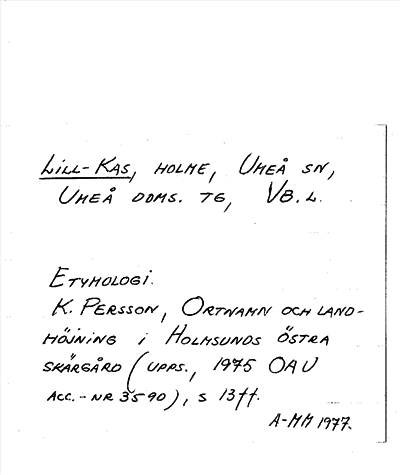 LILL-KAS, HOLME, UMEÅ SN,
UMEÅ DOMS. TG, VB. L.
ETYMOLOGI.
K. PERSSON, ORTNAMN OCH LAND-
HÖJNING I HOLMSUNDS ÖSTRA
SKÄRGÅRD (UPPS., 1975 OAU
ACC.-NR 3590), S 13 ff.
A-MM 1977.